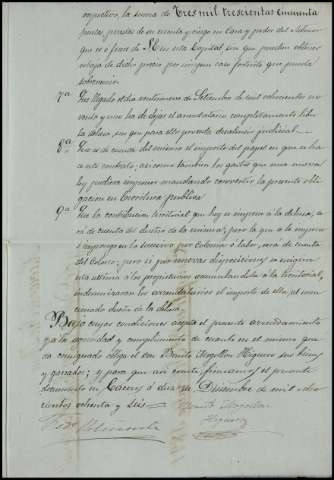 respectivo, la suma de Tres mil trescientas cincuenta
pesetas puestas de su cuenta y riesgo en Casa y poder del Señor
que es o fuera de en esta Capital sin que puedan obtener
rebaja de dicho precio por ningun caso fortuito que pueda
sobrevenir.
7ª Que llegado el dia veintinueve de Setiembre de mil ochocientos no-
venta y uno ha de dejar el arrendatario completamente libre
la dehesa, sin que para ello preceda desahucio judicial.
8ª Que es de cuenta del mismo el importe del papel en que se ha-
ce este contrato; asi como tambien los gastos que una nueva
ley pudiera imponer mandando convertir la presente obli-
gacion en Escritura publica.
9ª Que la contribucion territorial que hoy se impone a la dehesa, se-
rá de cuenta del dueño de la misma; pero la que se le imponga
o imponga en lo sucesivo por colonia ó labor, será de cuenta
del Colono; pero si por nuevas disposiciones se exigiera
esta ultima á los propietarios acumulandola á la territorial,
indemnizarán los arrendatarios el importe de ella, al men-
cionado dueño de la dehesa.
Bajo cuyas condiciones acepta el presente arrendamiento
y a la seguridad y cumplimiento de cuanto en el mismo que-
da consignado obliga el don Benito Mogollon Higuero sus bienes
y ganados; y para que asi conste, firmamos el presente
documento en Caceres á diez de Diciembre de mil ocho-
cientos ochenta y seis
Benito Mogollon
Higuero